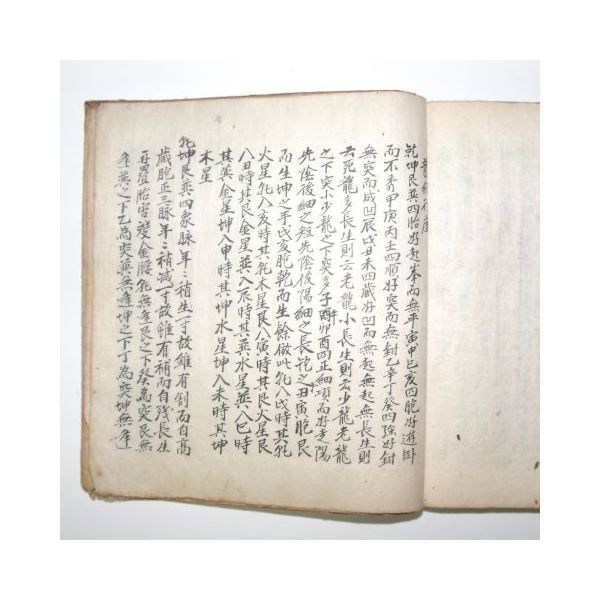 乾坤艮巽四胎好起峯而無平寅申巳亥四胞好遊臥
而不奔甲庚丙壬四順好突而無缺乙辛丁癸四強好鉗
無突而成凹辰戌丑未四藏好凹而無起無起無長生則
云死龍多長生則云老龍小長生則云少龍老龍
之下突小少龍之下突多子午卯酉四正細項而好走陽
先陰後細之短先陰後陽細之長
而生坤之乎戌亥胞乾而生餘倣此乾入戌時其乾
火星乾入亥時其乾木星艮入寅時其艮火星艮
入丑時其艮金星巽入辰時其巽水星巽入巳時
其巽金星坤入申時其坤水星坤入未時其坤
木星
乾坤艮巽四象脉年々稍生一寸故雖有割而自高
藏胞正三脉年々稍減一寸故雖有補而自殘長生
癸金腰乾無逢艮之下癸為突艮無
逢巽之下乙為突巽無逢坤之下丁為突坤無逢